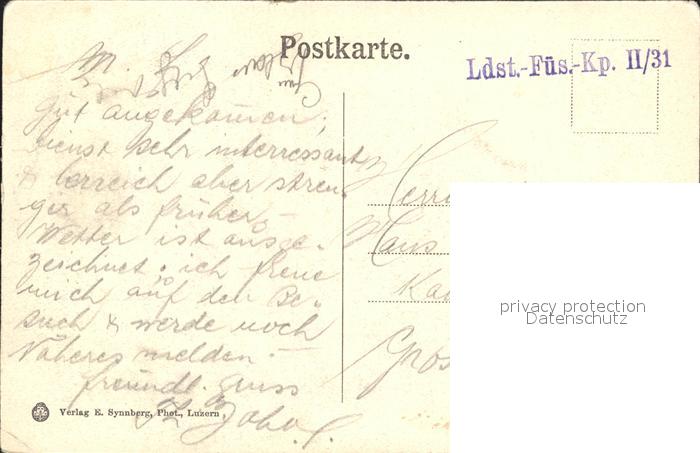 Postkarte.
Ldst.-Füs.-Kp. II/31
M.
Gut angekommen;
Dienst sehr interressant
& lerreich aber stren-
ger als früher,-
Wetter ist ausge-
zeichnet; ich freue
mich auf den Be-
such & werde noch
Näheres melden.-
freundl. Gruss
Herrn
Hans
Verlag E. Synnberg, Phot., Luzern.
privacy protection
Datenschutz